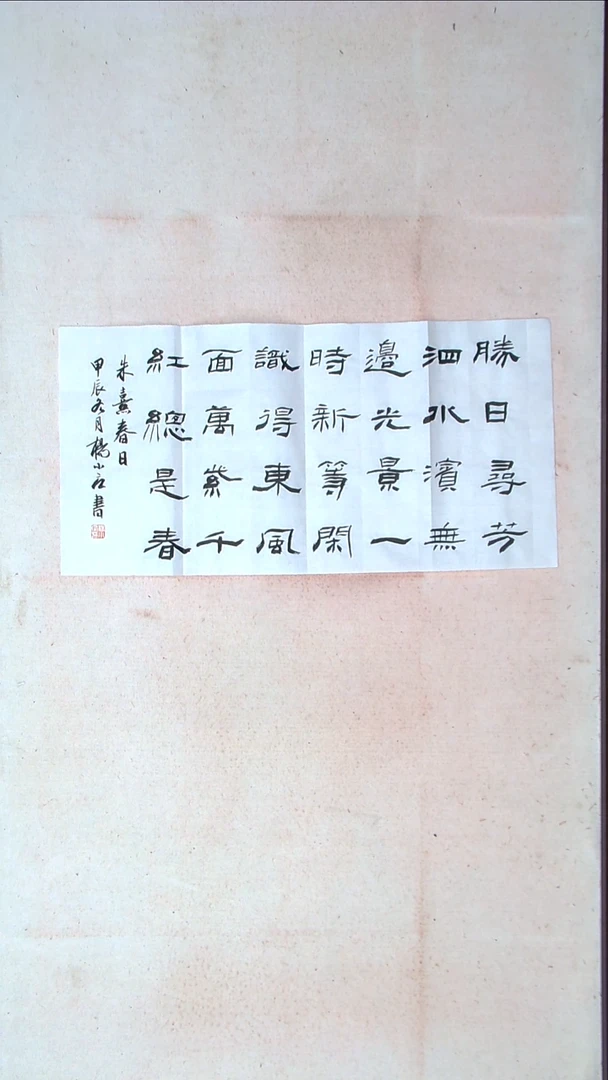 勝日尋芳
泗水濱無
邊光景一
時新等閑
識得東風
面萬紫千
紅總是春
朱熹春日
甲辰冬月楊小
書